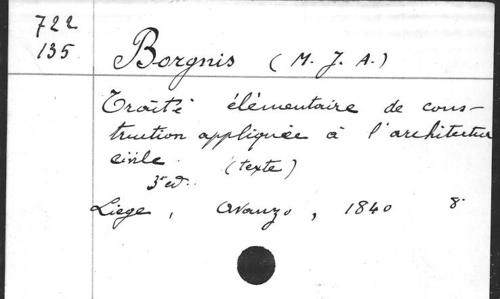 722
135
Borgnis (M. J. A.)
Traité élémentaire de cons-
truction appliquée à l'architecture
civile. (texte)
3e ed.
Liege, Avanzo, 1840 8°